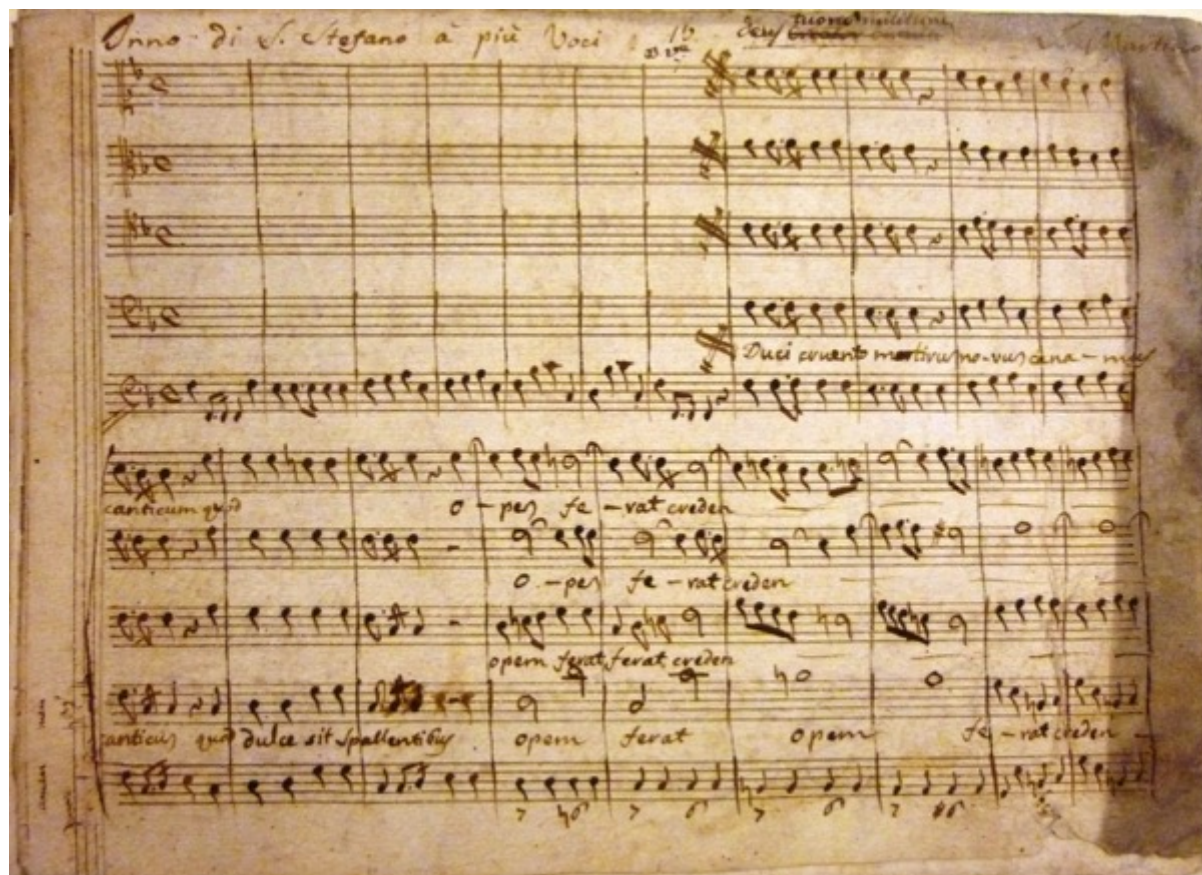 Inno di S. Stefano à più Voci 16 deus tuorum militum Martin
Duci cruento martirus no-vus cana-mus
canticum quod o-pen fe-rat creden
o-pen fe-rat creden
opem ferat, ferat creden
canticus quod dulce sit spallentibus opem ferat opem fe-rat creden
7 ♮6 7 6 7 6 7 #6